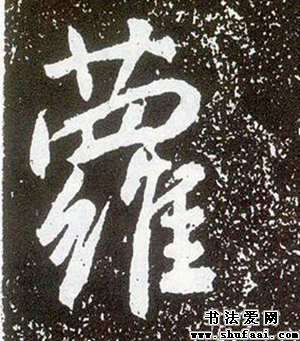 蘿
书法爱网
www.shufaai.com